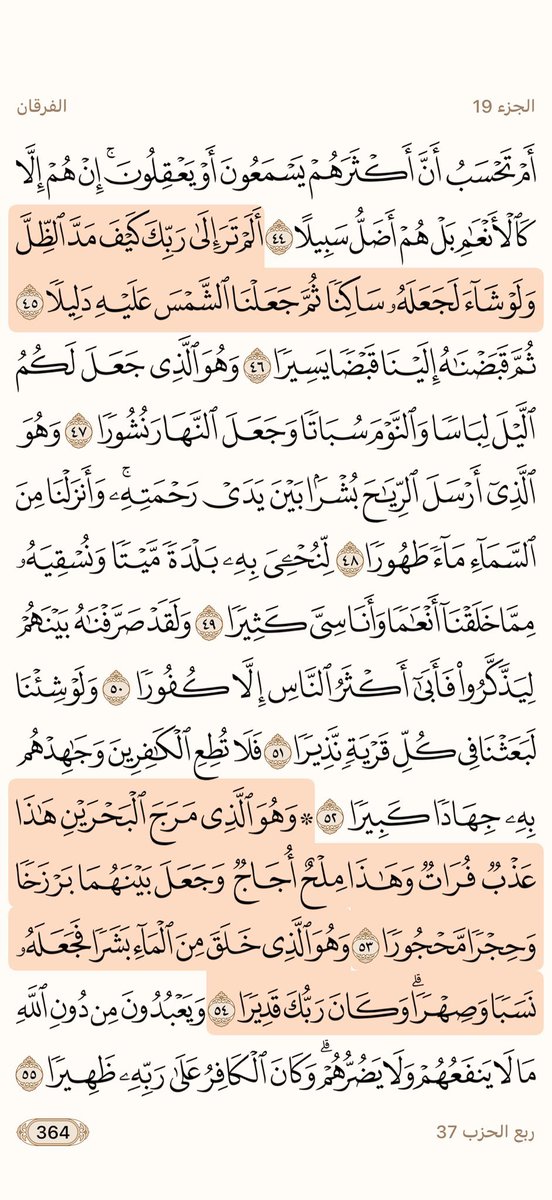 الجزء 19 الفرقان
أَمْ تَحْسَبُ أَنَّ أَكْثَرَهُمْ يَسْمَعُونَ أَوْ يَعْقِلُونَ ۚ إِنْ هُمْ إِلَّا
كَٱلْأَنْعَٰمِ بَلْ هُمْ أَضَلُّ سَبِيلًا ٤٤ أَلَمْ تَرَ إِلَىٰ رَبِّكَ كَيْفَ مَدَّ ٱلظِّلَّ
وَلَوْ شَآءَ لَجَعَلَهُۥ سَاكِنًا ثُمَّ جَعَلْنَا ٱلشَّمْسَ عَلَيْهِ دَلِيلًا ٤٥
ثُمَّ قَبَضْنَٰهُ إِلَيْنَا قَبْضًا يَسِيرًا ٤٦ وَهُوَ ٱلَّذِى جَعَلَ لَكُمُ
ٱلَّيْلَ لِبَاسًا وَٱلنَّوْمَ سُبَاتًا وَجَعَلَ ٱلنَّهَارَ نُشُورًا ٤٧ وَهُوَ
ٱلَّذِىٓ أَرْسَلَ ٱلرِّيَٰحَ بُشْرًۢا بَيْنَ يَدَىْ رَحْمَتِهِۦ ۚ وَأَنزَلْنَا مِنَ
ٱلسَّمَآءِ مَآءً طَهُورًا ٤٨ لِّنُحْـِۧىَ بِهِۦ بَلْدَةً مَّيْتًا وَنُسْقِيَهُۥ
مِمَّا خَلَقْنَآ أَنْعَٰمًا وَأَنَاسِىَّ كَثِيرًا ٤٩ وَلَقَدْ صَرَّفْنَٰهُ بَيْنَهُمْ
لِيَذَّكَّرُوا۟ فَأَبَىٰٓ أَكْثَرُ ٱلنَّاسِ إِلَّا كُفُورًا ٥٠ وَلَوْ شِئْنَا
لَبَعَثْنَا فِى كُلِّ قَرْيَةٍ نَّذِيرًا ٥١ فَلَا تُطِعِ ٱلْكَٰفِرِينَ وَجَٰهِدْهُم
بِهِۦ جِهَادًا كَبِيرًا ٥٢ ۞ وَهُوَ ٱلَّذِى مَرَجَ ٱلْبَحْرَيْنِ هَٰذَا
عَذْبٌ فُرَاتٌ وَهَٰذَا مِلْحٌ أُجَاجٌ وَجَعَلَ بَيْنَهُمَا بَرْزَخًا
وَحِجْرًا مَّحْجُورًا ٥٣ وَهُوَ ٱلَّذِى خَلَقَ مِنَ ٱلْمَآءِ بَشَرًا فَجَعَلَهُۥ
نَسَبًا وَصِهْرًا ۗ وَكَانَ رَبُّكَ قَدِيرًا ٥٤ وَيَعْبُدُونَ مِن دُونِ ٱللَّهِ
مَا لَا يَنفَعُهُمْ وَلَا يَضُرُّهُمْ ۗ وَكَانَ ٱلْكَافِرُ عَلَىٰ رَبِّهِۦ ظَهِيرًا ٥٥
ربع الحزب 37 364